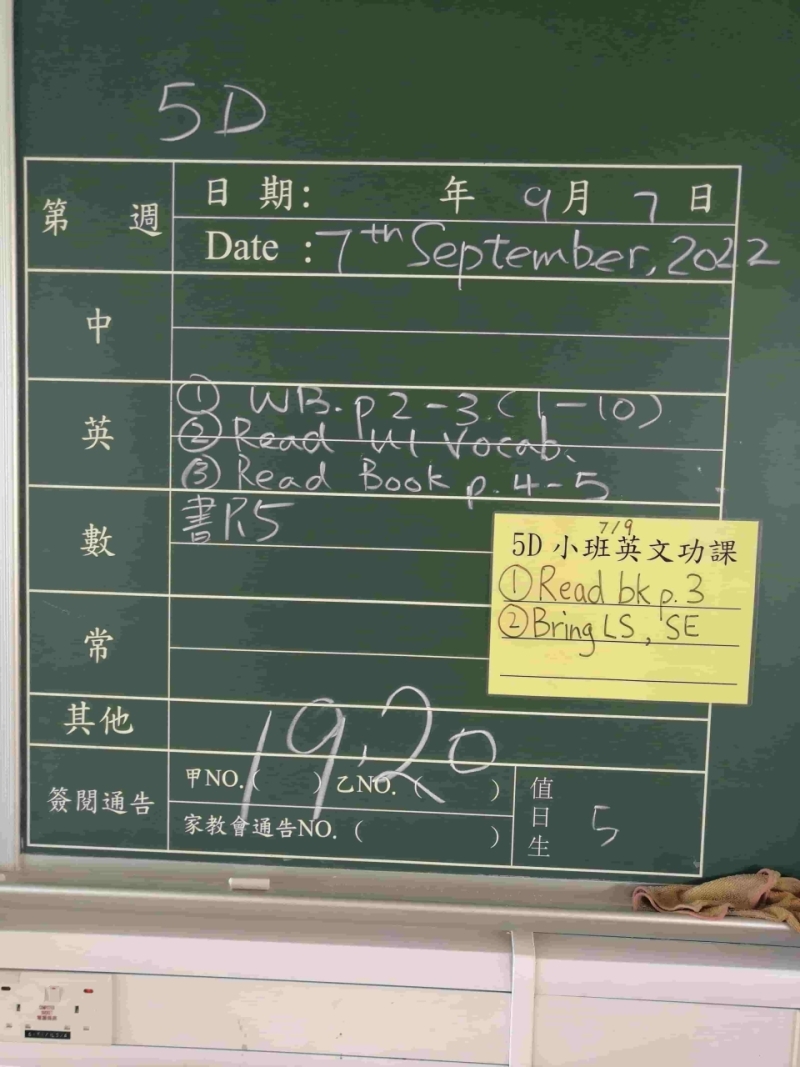 5D
第 週
日 期: 年 9 月 7 日
Date : 7th September, 2022
中
英
① WB. p 2-3. (1-10)
② Read U1 Vocab.
③ Read Book p. 4-5
數
書P.5
7/9
5D 小班英文功課
① Read bk p. 3
② Bring LS, SE
常
其他
19, 20
簽閱通告
甲NO. ( ) 乙NO. ( )
家教會通告NO. ( )
值日生
5